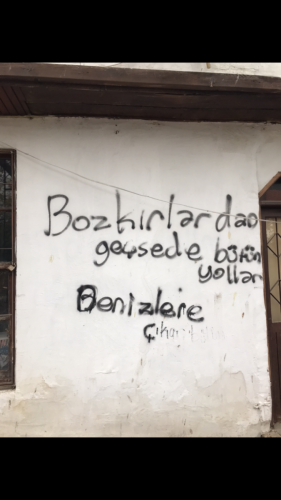 Bozkırlardan
geçsede bütün
yollar
Denizlere
Çıkar